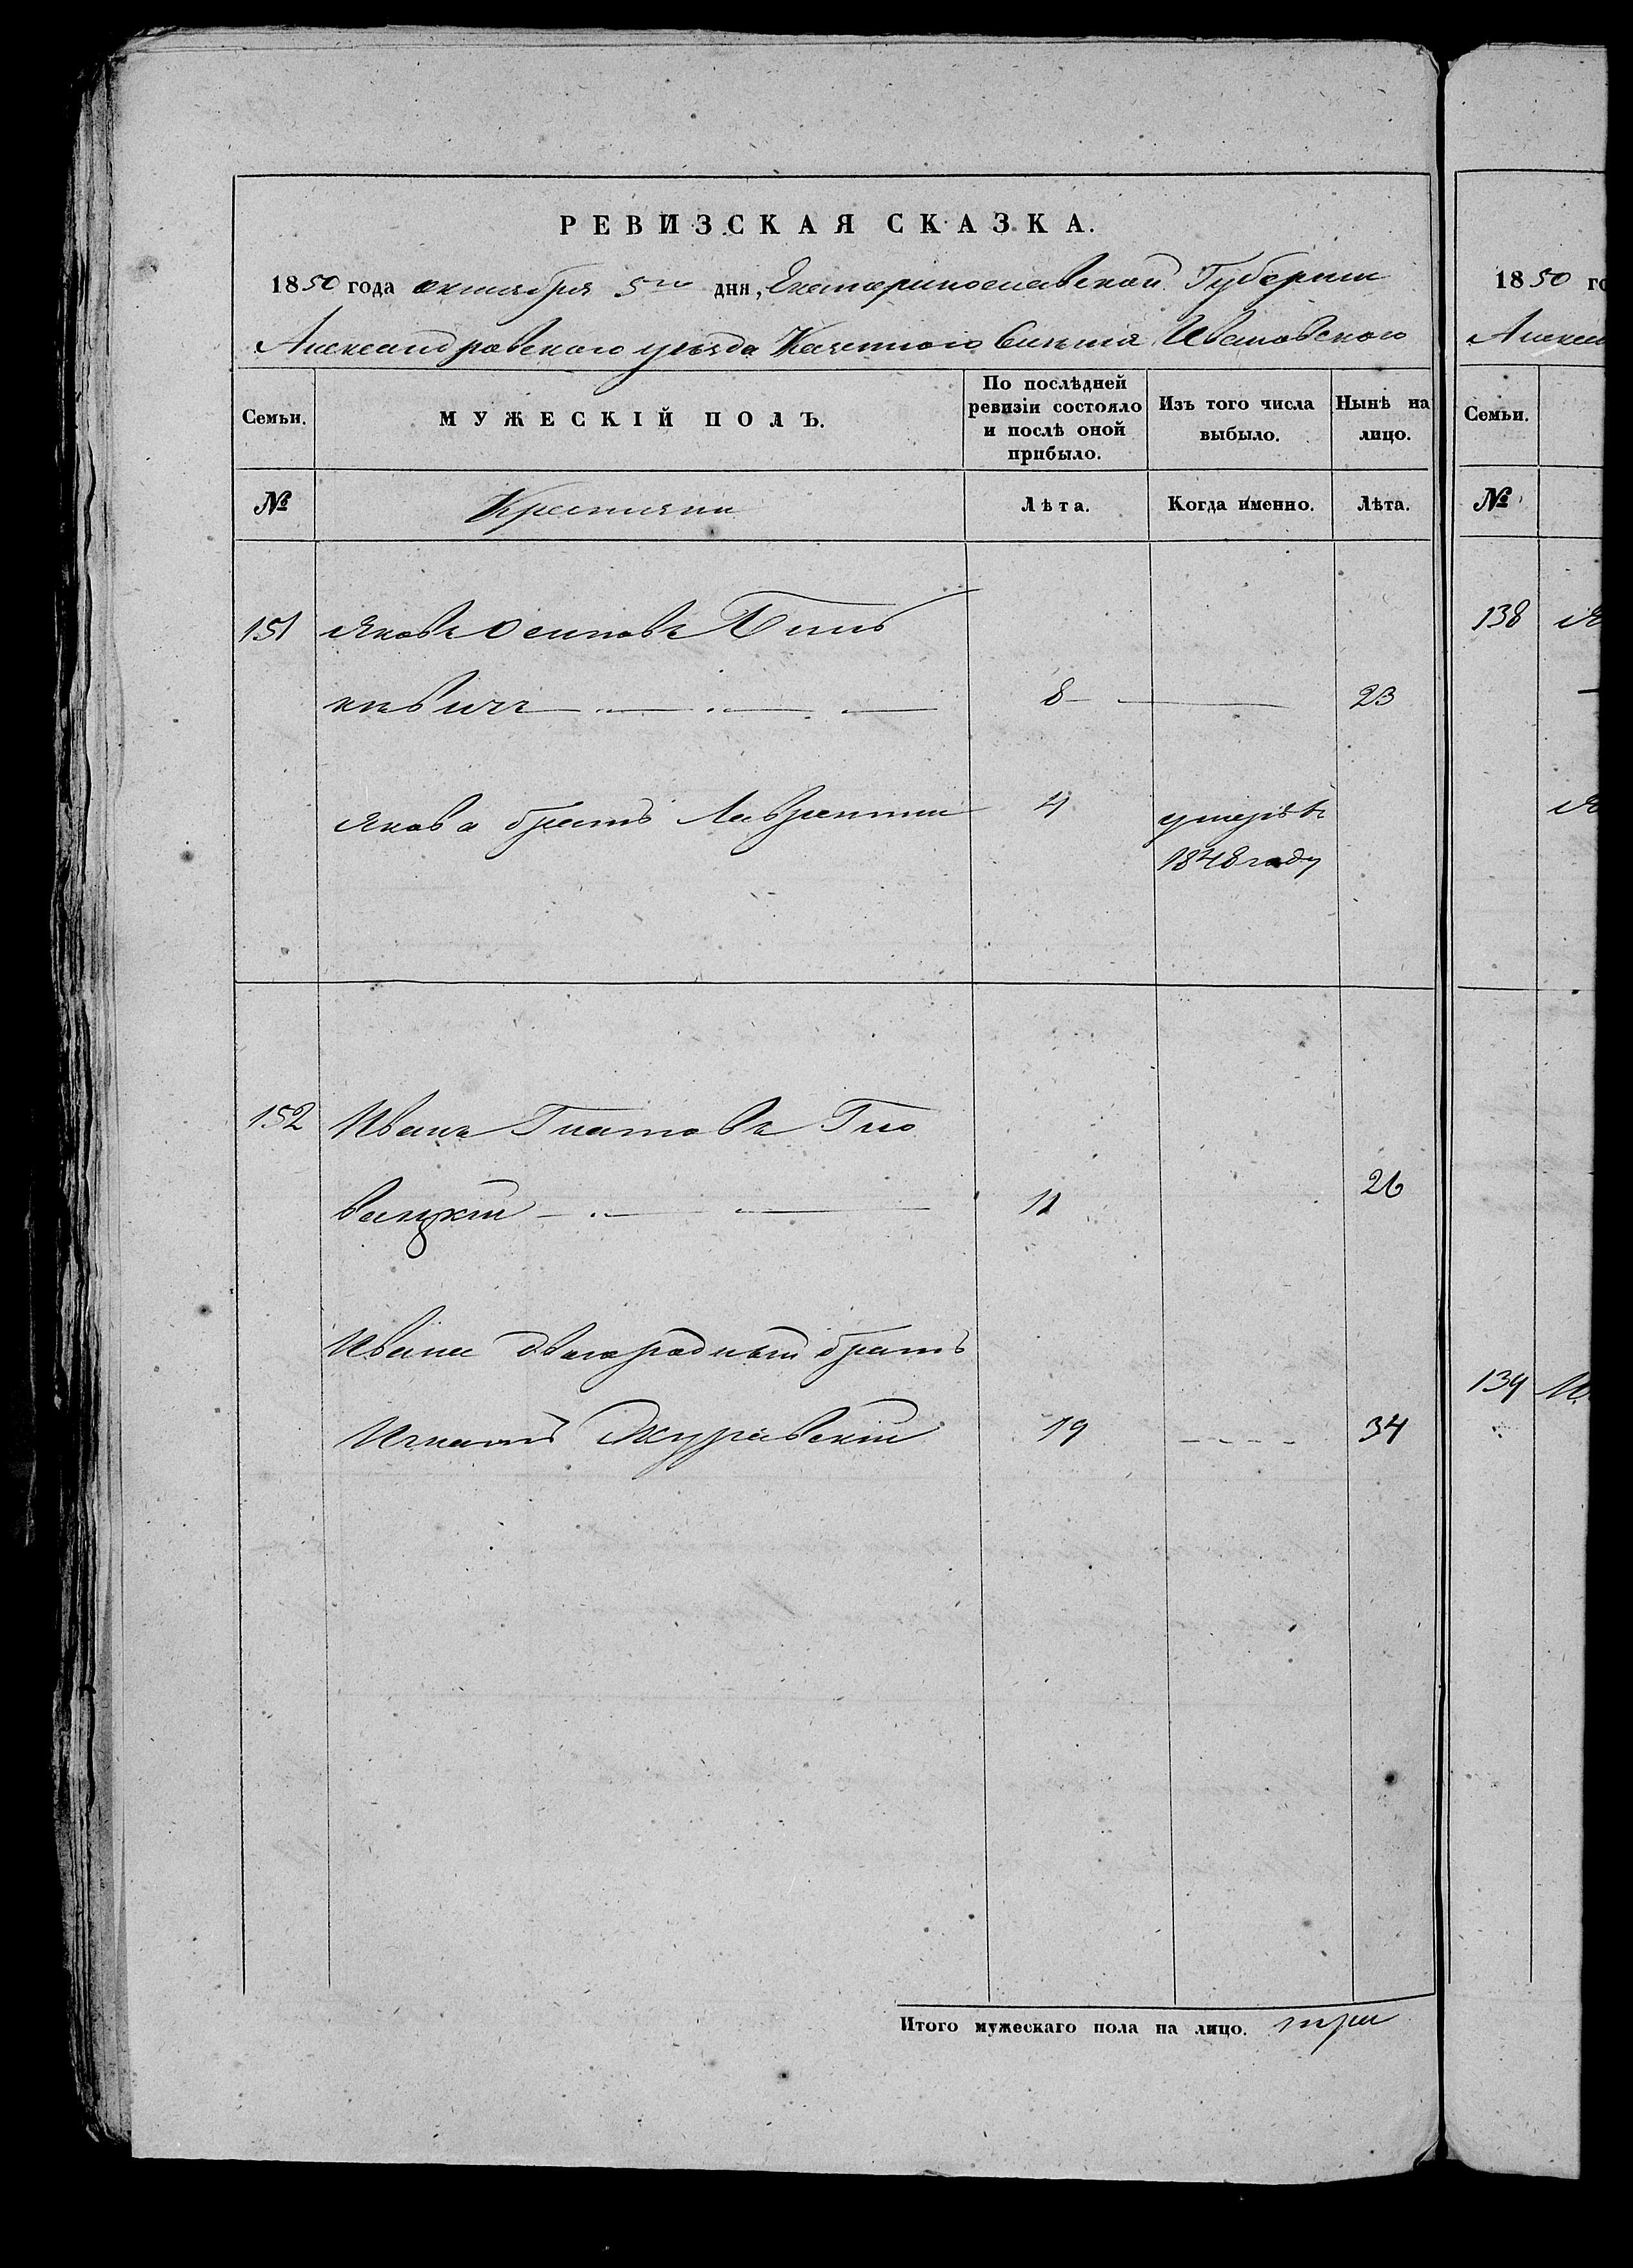 РЕВИЗСКАЯ СКАЗКА.
1850 года октября 5го дня, Екатеринославской Губернии
Александровского уезда Казенного Имения Ивановского
Семьи.
МУЖЕСКІЙ ПОЛЪ.
По послѣдней ревизіи состояло и послѣ оной прибыло.
Изъ того числа выбыло.
Нынѣ на лицо.
№
Крестьяни
Лѣта.
Когда именно.
Лѣта.
151 Яковъ Осиповъ
кевичъ 8 23
Якова братъ Лаврентии 4 умеръ въ
1848 году
152 Иванъ Гнатовъ Гло
вацкии 11 26
Ивана двоюродныи братъ
Игнатъ Журавскіи 19 34
Итого мужескаго пола на лицо. три
1850 го
Алексан
Семьи.
№
138 Я
Я
139